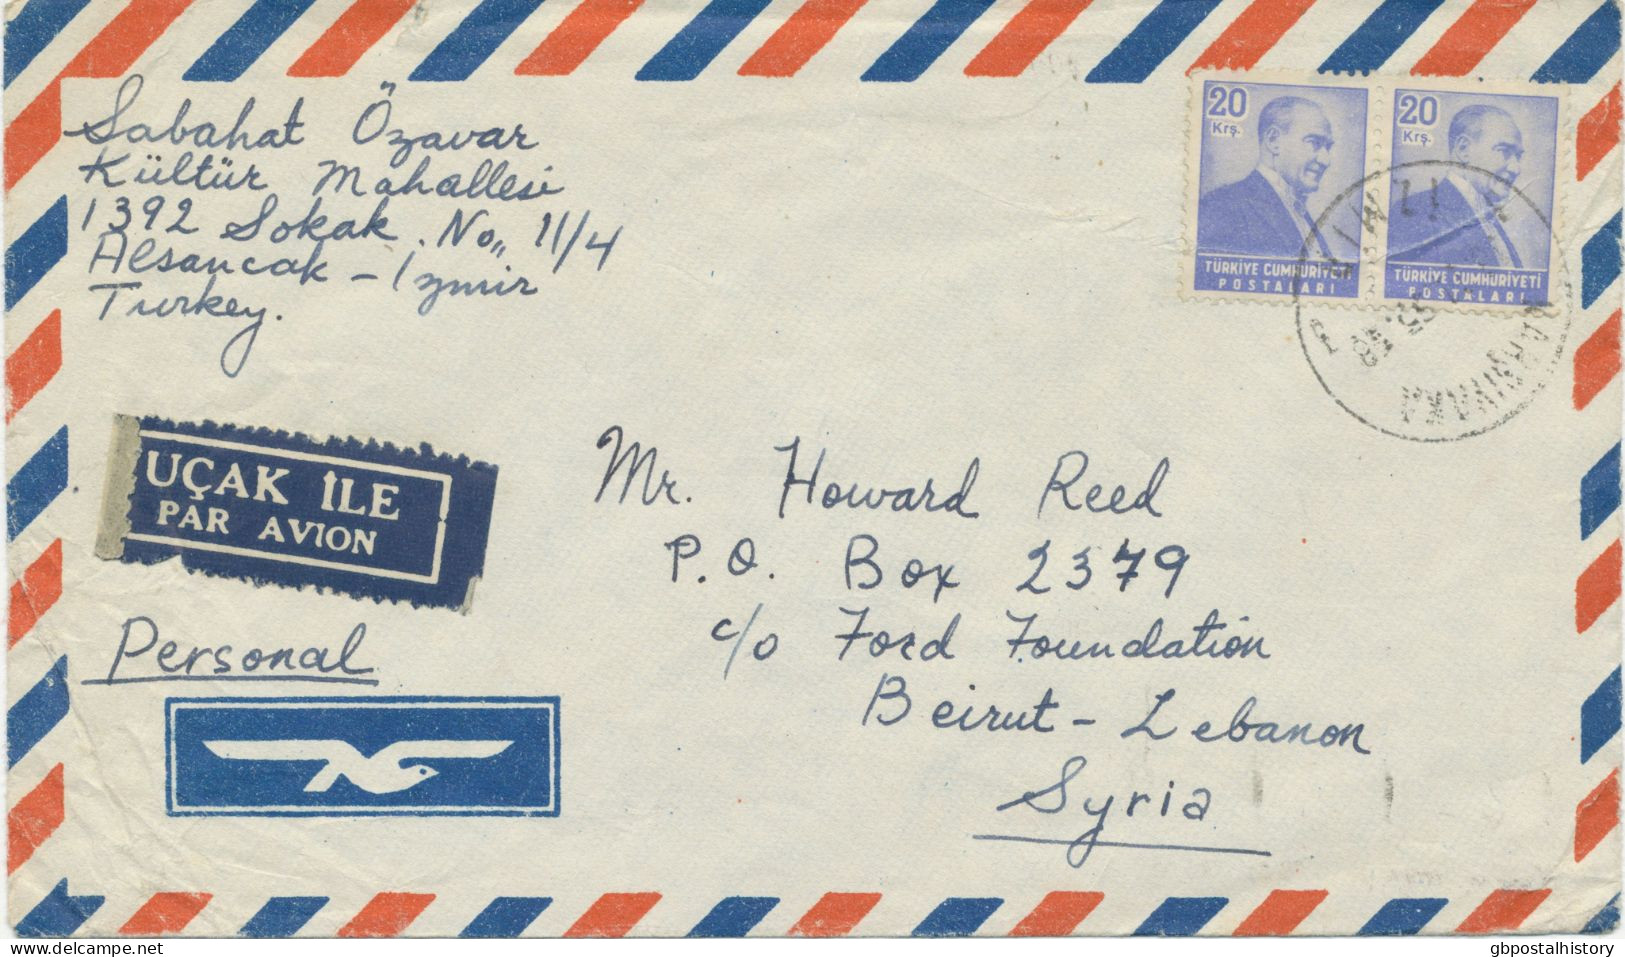 Sabahat Özavar
Kültür Mahallesi
1392 Sokak. No,, 11/4
Alsancak - İzmir
Turkey.
20
Krş.
TÜRKİYE CUMHURİYETİ
POSTALARI
20
Krş.
TÜRKİYE CUMHURİYETİ
POSTALARI
İZMİR
KARŞIYAKA
UÇAK İLE
PAR AVION
Personal
Mr. Howard Reed
P.O. Box 2379
c/o Ford Foundation
Beirut - Lebanon
Syria
delcampe.net
gbpostalhistory